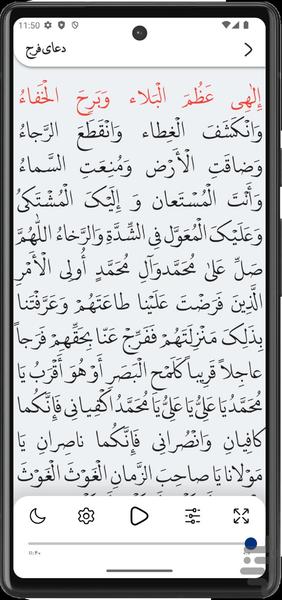 11:50
دعای فرج
إِلٰهِی عَظُمَ الْبَلاء وَبَرِحَ الْخَفاءُ
وَانْکَشَفَ الْغِطاء وَانْقَطَعَ الرَّجاءُ
وَضاقَتِ الْأَرْض وَمُنِعَتِ السَّماءُ
وَأَنْتَ الْمُسْتَعان وَ إِلَیْکَ الْمُشْتَکىٰ
وَعَلَیْکَ الْمُعَوَّل فِی الشِّدَّةِ وَالرَّخاءُ اللّٰهُمَّ
صَلِّ عَلىٰ مُحَمَّدوَآلِ مُحَمَّدٍ أُولِی الْأَمْرِ
الَّذِینَ فَرَضْتَ عَلَیْنا طاعَتَهُمْ وَعَرَّفْتَنا
بِذلِکَ مَنْزِلَتَهُمْ فَفَرِّجْ عَنَّا بِحَقِّهِمْ فَرَجاً
عاجِلاً قَرِیباً کَلَمْحِ الْبَصَرِ أَوْ هُوَ أَقْرَبُ یَا
مُحَمَّدُ یَا عَلِیُّ یَا عَلِیُّ یَا مُحَمَّدُ اکْفِیانِی فَإِنَّکُما
کافِیانِ وَانْصُرانِی فَإِنَّکُما ناصِرانِ یَا
مَوْلانا یَا صاحِبَ الزَّمانِ الْغَوْثَ الْغَوْثَ